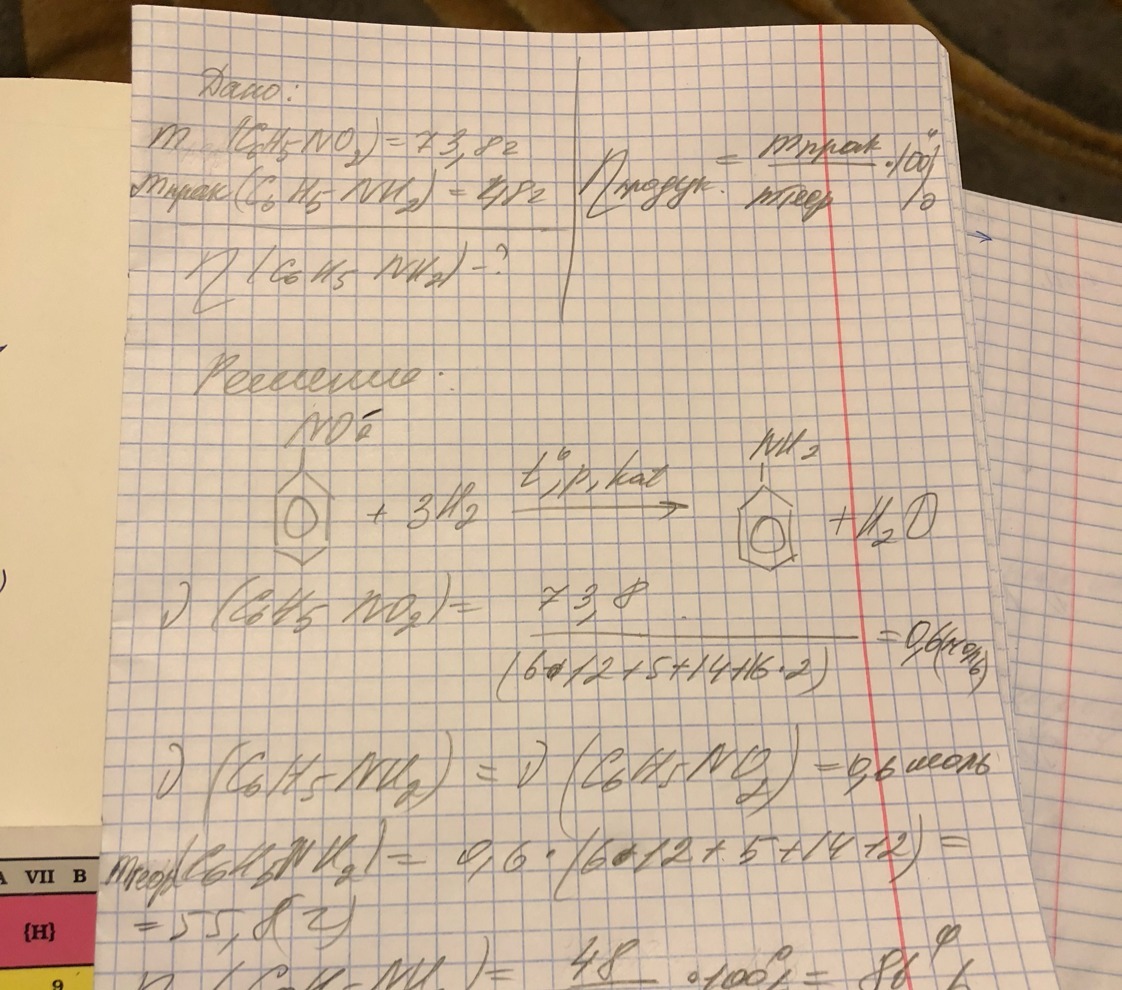 Дано:
m (C6H5NO2) = 73,8г
mпрак(C6H5-NH2) = 48г
η (C6H5NH2) -?
ηпродук. = mпрак/mтеор · 100%
Решение:
NO2
+ 3H2 t°, p, kat →
NH2
+ H2O
ν (C6H5NO2) = 73,8 / (6·12+5+14+16·2) = 0,6(моль)
ν (C6H5-NH2) = ν (C6H5NO2) = 0,6 моль
mтеор(C6H5NH2) = 0,6 · (6·12+5+14+2) =
= 55,8(г)
η (C6H5-NH2) = 48 · 100% = 86%
VII B
{H}
9